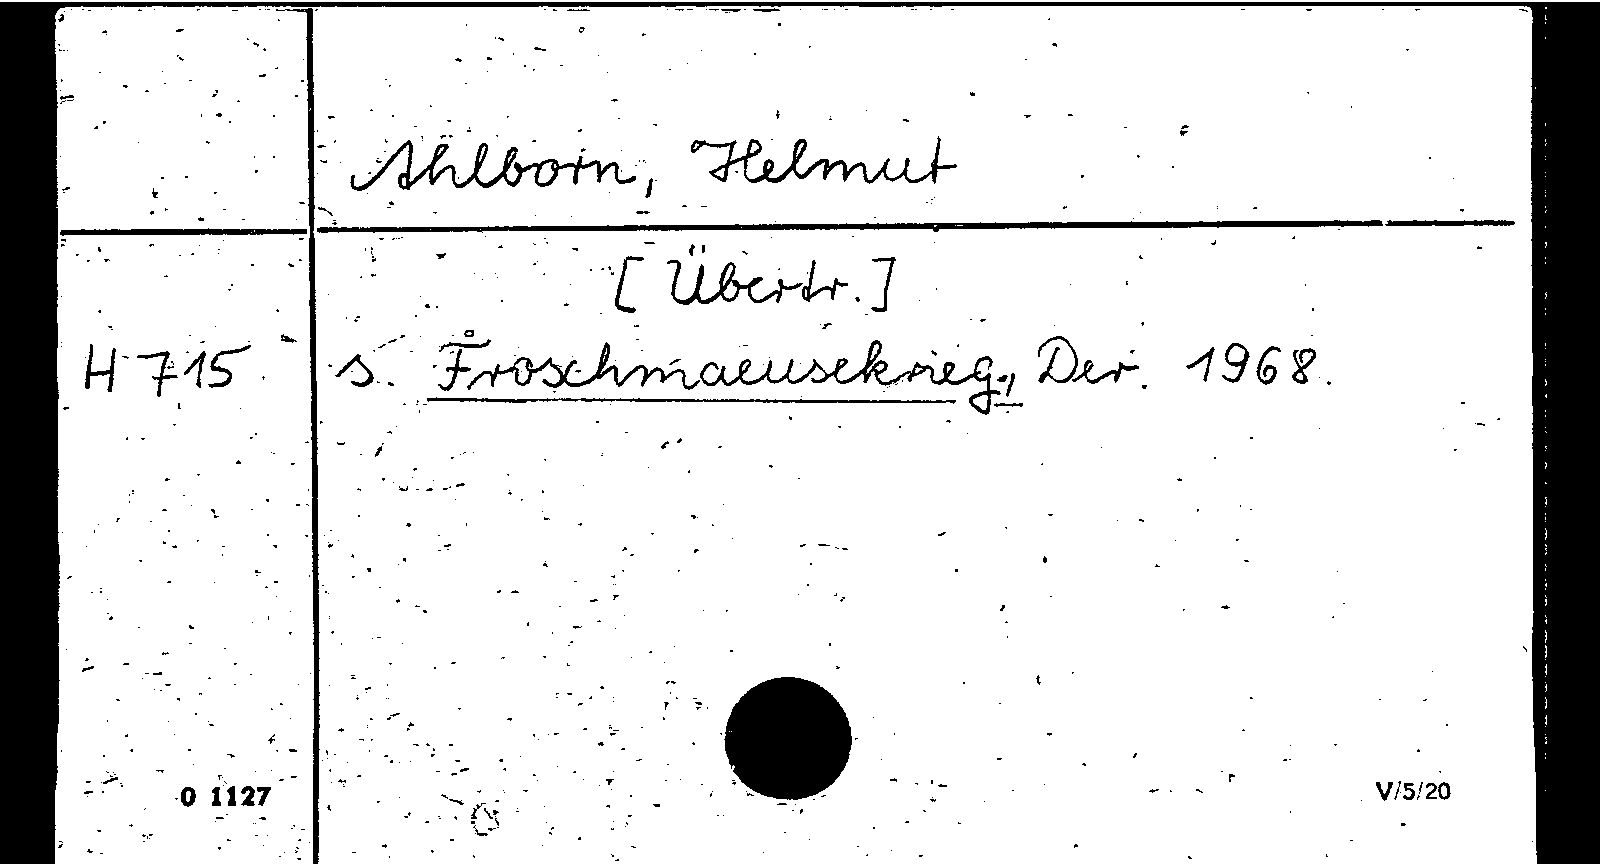 Ahlborn, Helmut
[Übertr.]
H 715 s. Froschmaeusekrieg, Der. 1968.
O 1127 V/5/20